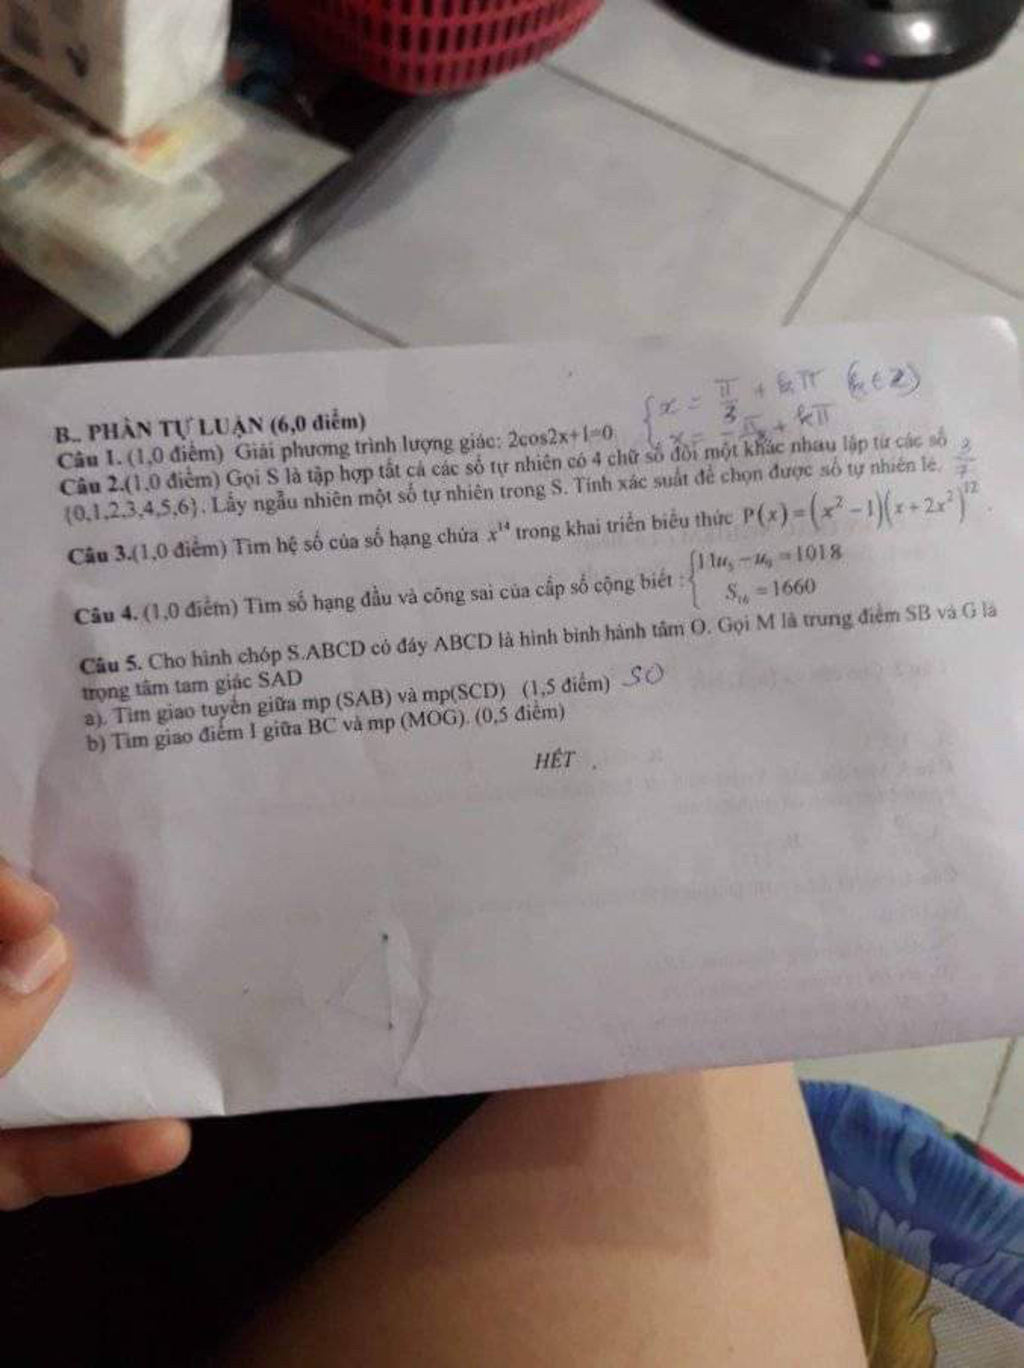 B.. PHẦN TỰ LUẬN (6,0 điểm)
{x = π/3 + kπ (k ∈ Z)
x = -π/3 + kπ
Câu 1. (1,0 điểm) Giải phương trình lượng giác: 2cos2x+1=0
Câu 2.(1,0 điểm) Gọi S là tập hợp tất cả các số tự nhiên có 4 chữ số đôi một khác nhau lập từ các số
{0,1,2,3,4,5,6}. Lấy ngẫu nhiên một số tự nhiên trong S. Tính xác suất để chọn được số tự nhiên lẻ.
Câu 3.(1,0 điểm) Tìm hệ số của số hạng chứa x¹⁴ trong khai triển biểu thức P(x)=(x²-1)(x+2x²)¹².
Câu 4. (1,0 điểm) Tìm số hạng đầu và công sai của cấp số cộng biết : {11u₅-u₉=1018
S₁₆=1660
Câu 5. Cho hình chóp S.ABCD có đáy ABCD là hình bình hành tâm O. Gọi M là trung điểm SB và G là
trọng tâm tam giác SAD
a). Tìm giao tuyến giữa mp (SAB) và mp(SCD) (1,5 điểm) SO
b) Tìm giao điểm I giữa BC và mp (MOG). (0,5 điểm)
HẾT .